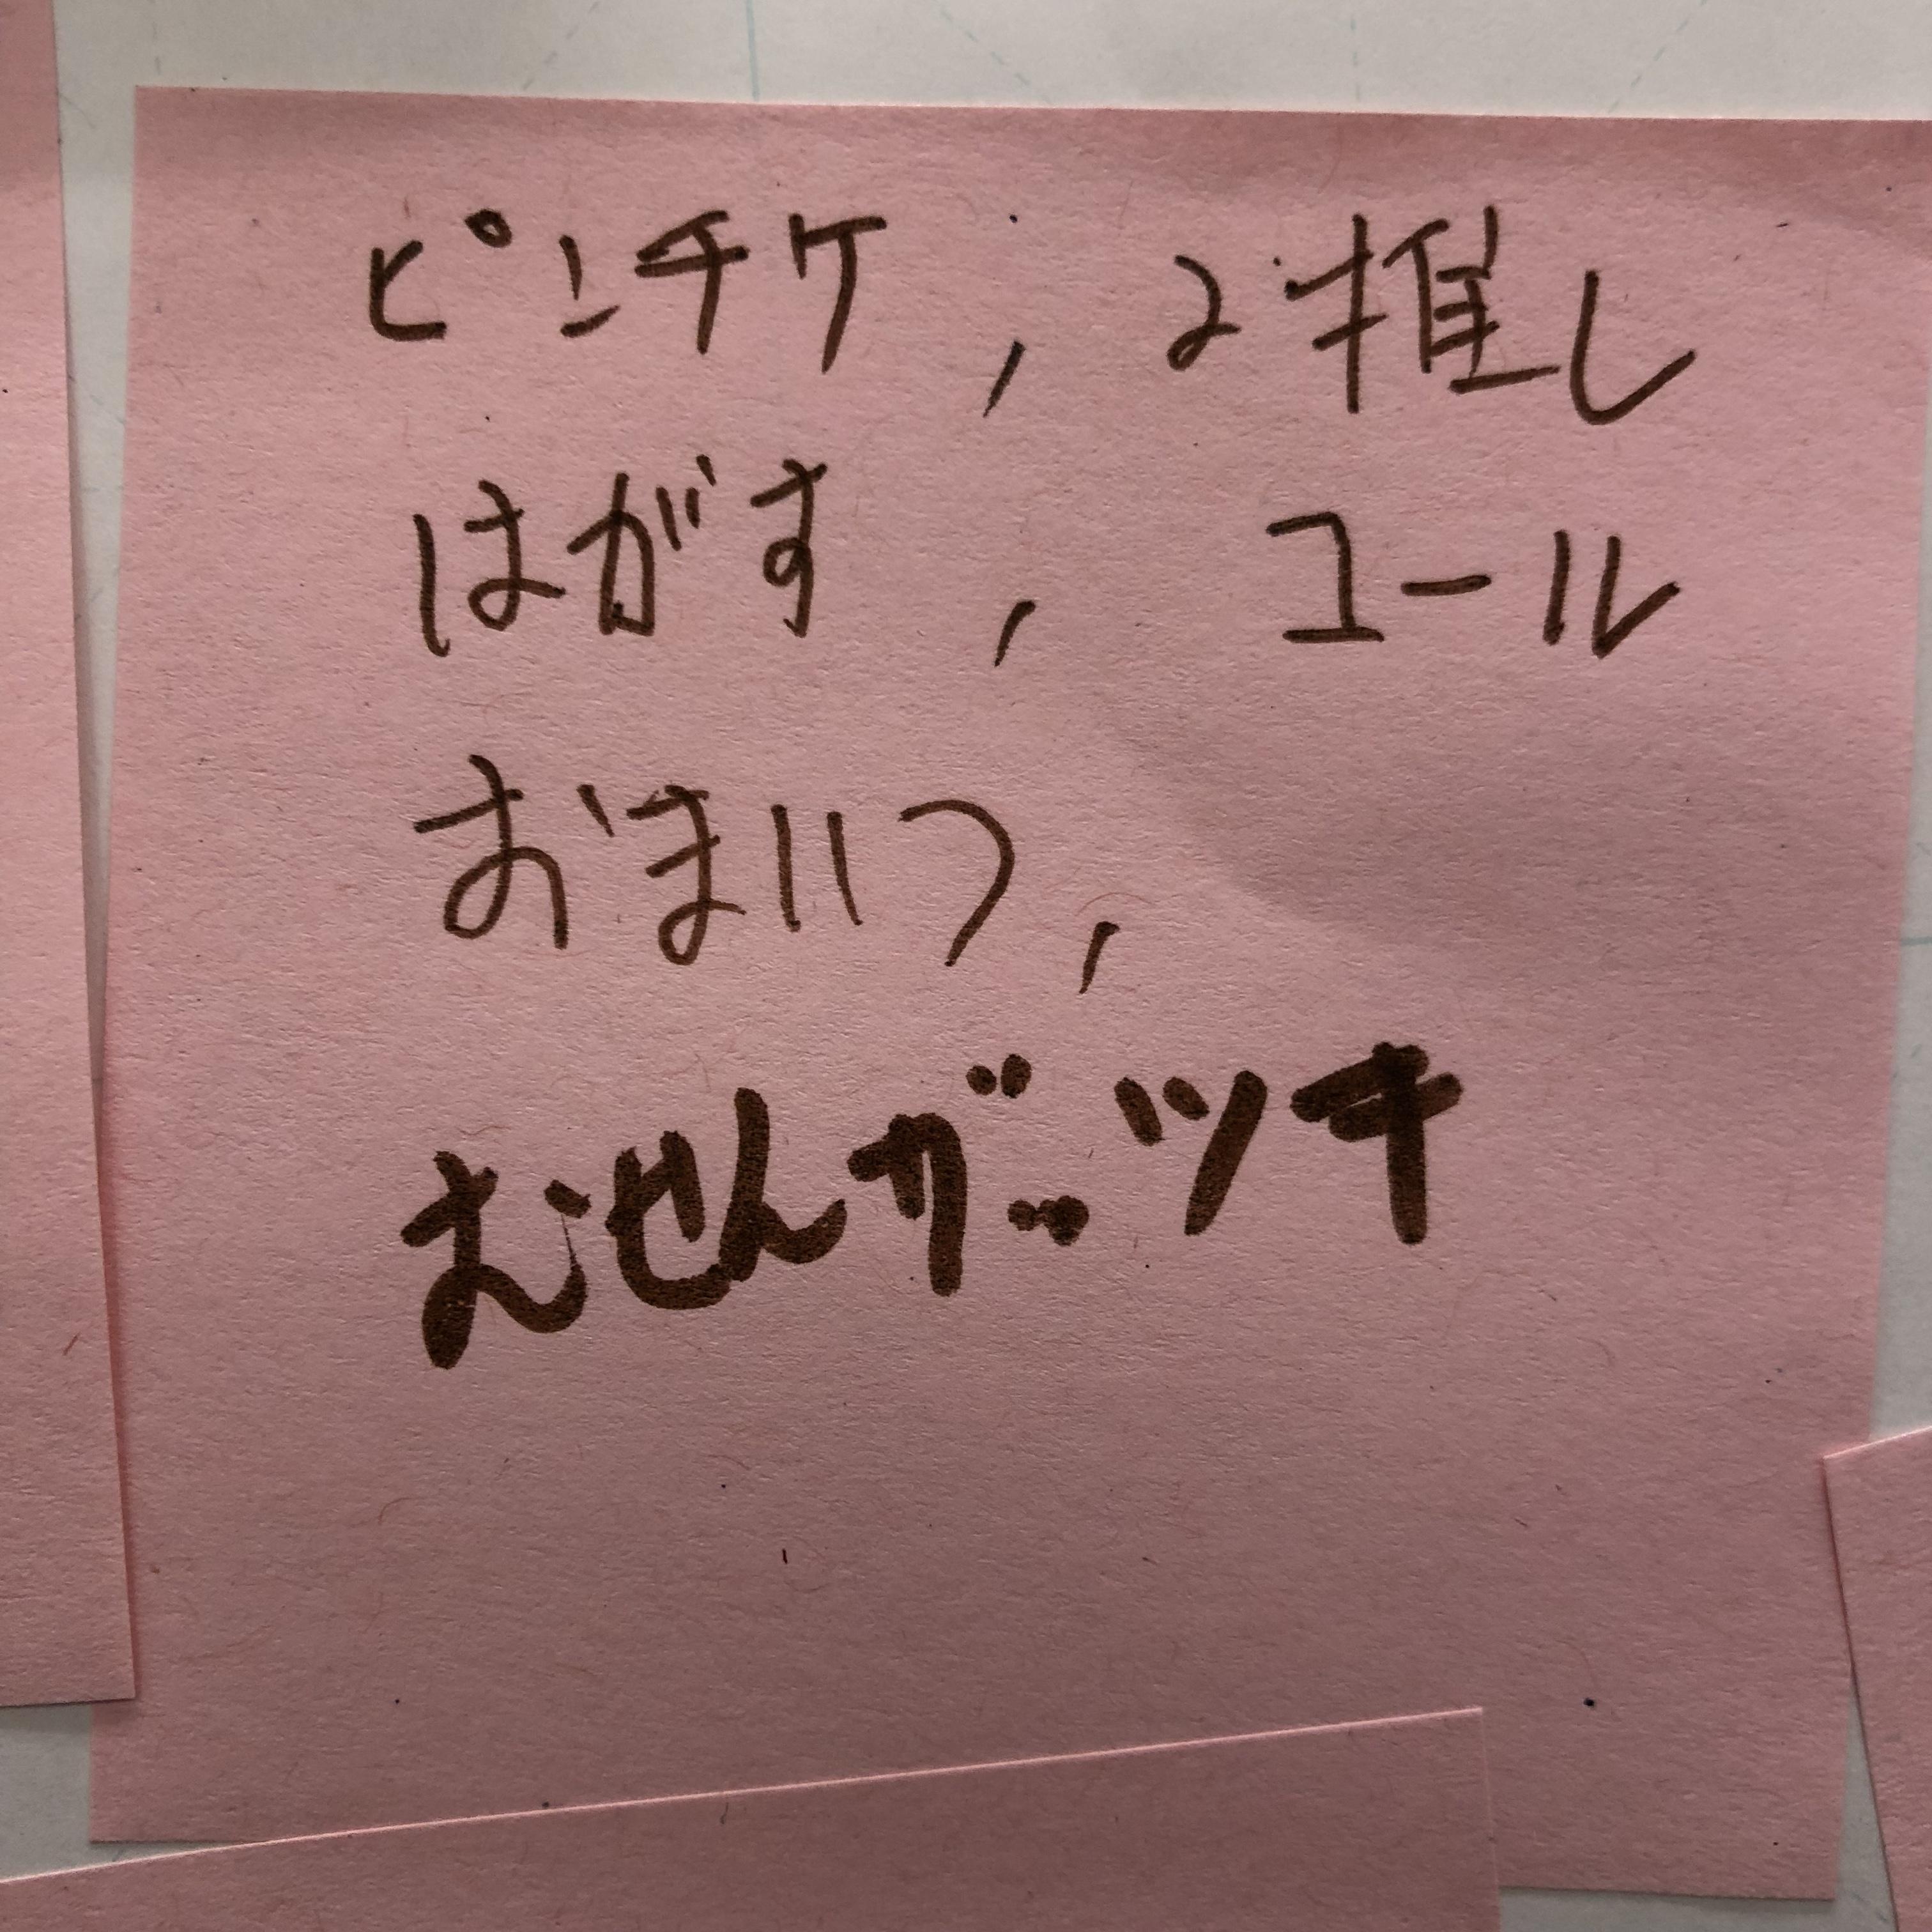 ピンチケ, 2推し
はがす, コール
おまいつ,
むせんガッツキ